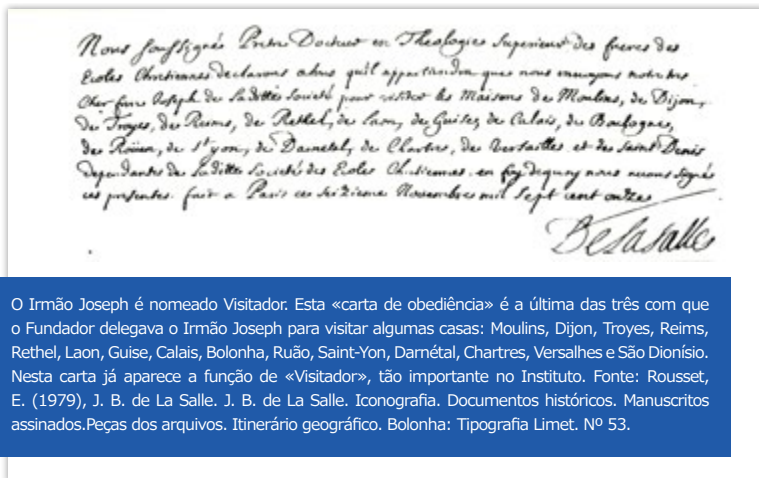 Nous soussignés Pretre Docteur en Theologie Superieur des freres des
Ecoles Chretiennes declarons a tous qu'il appartiendra que nous envoyons notre tres
Cher frere Joseph de Laditte Societé pour visiter les Maisons de Moulins, de Dijon,
de Troyes, de Reims, de Rethel, de Laon, de Guise, de Calais, de Boulogne,
de Roüen, de st yon, de Darnetal, de Chartres, de Versailles et de Saint Denis
dependantes de Laditte Societé des Ecoles Chretiennes. en foy dequoy nous avons signé
ces presentes. fait a Paris ce seizieme Novembre mil sept cent onze
De La Salle
O Irmão Joseph é nomeado Visitador. Esta «carta de obediência» é a última das três com que
o Fundador delegava o Irmão Joseph para visitar algumas casas: Moulins, Dijon, Troyes, Reims,
Rethel, Laon, Guise, Calais, Bolonha, Ruão, Saint-Yon, Darnétal, Chartres, Versalhes e São Dionísio.
Nesta carta já aparece a função de «Visitador», tão importante no Instituto. Fonte: Rousset,
E. (1979), J. B. de La Salle. J. B. de La Salle. Iconografia. Documentos históricos. Manuscritos
assinados.Peças dos arquivos. Itinerário geográfico. Bolonha: Tipografia Limet. Nº 53.